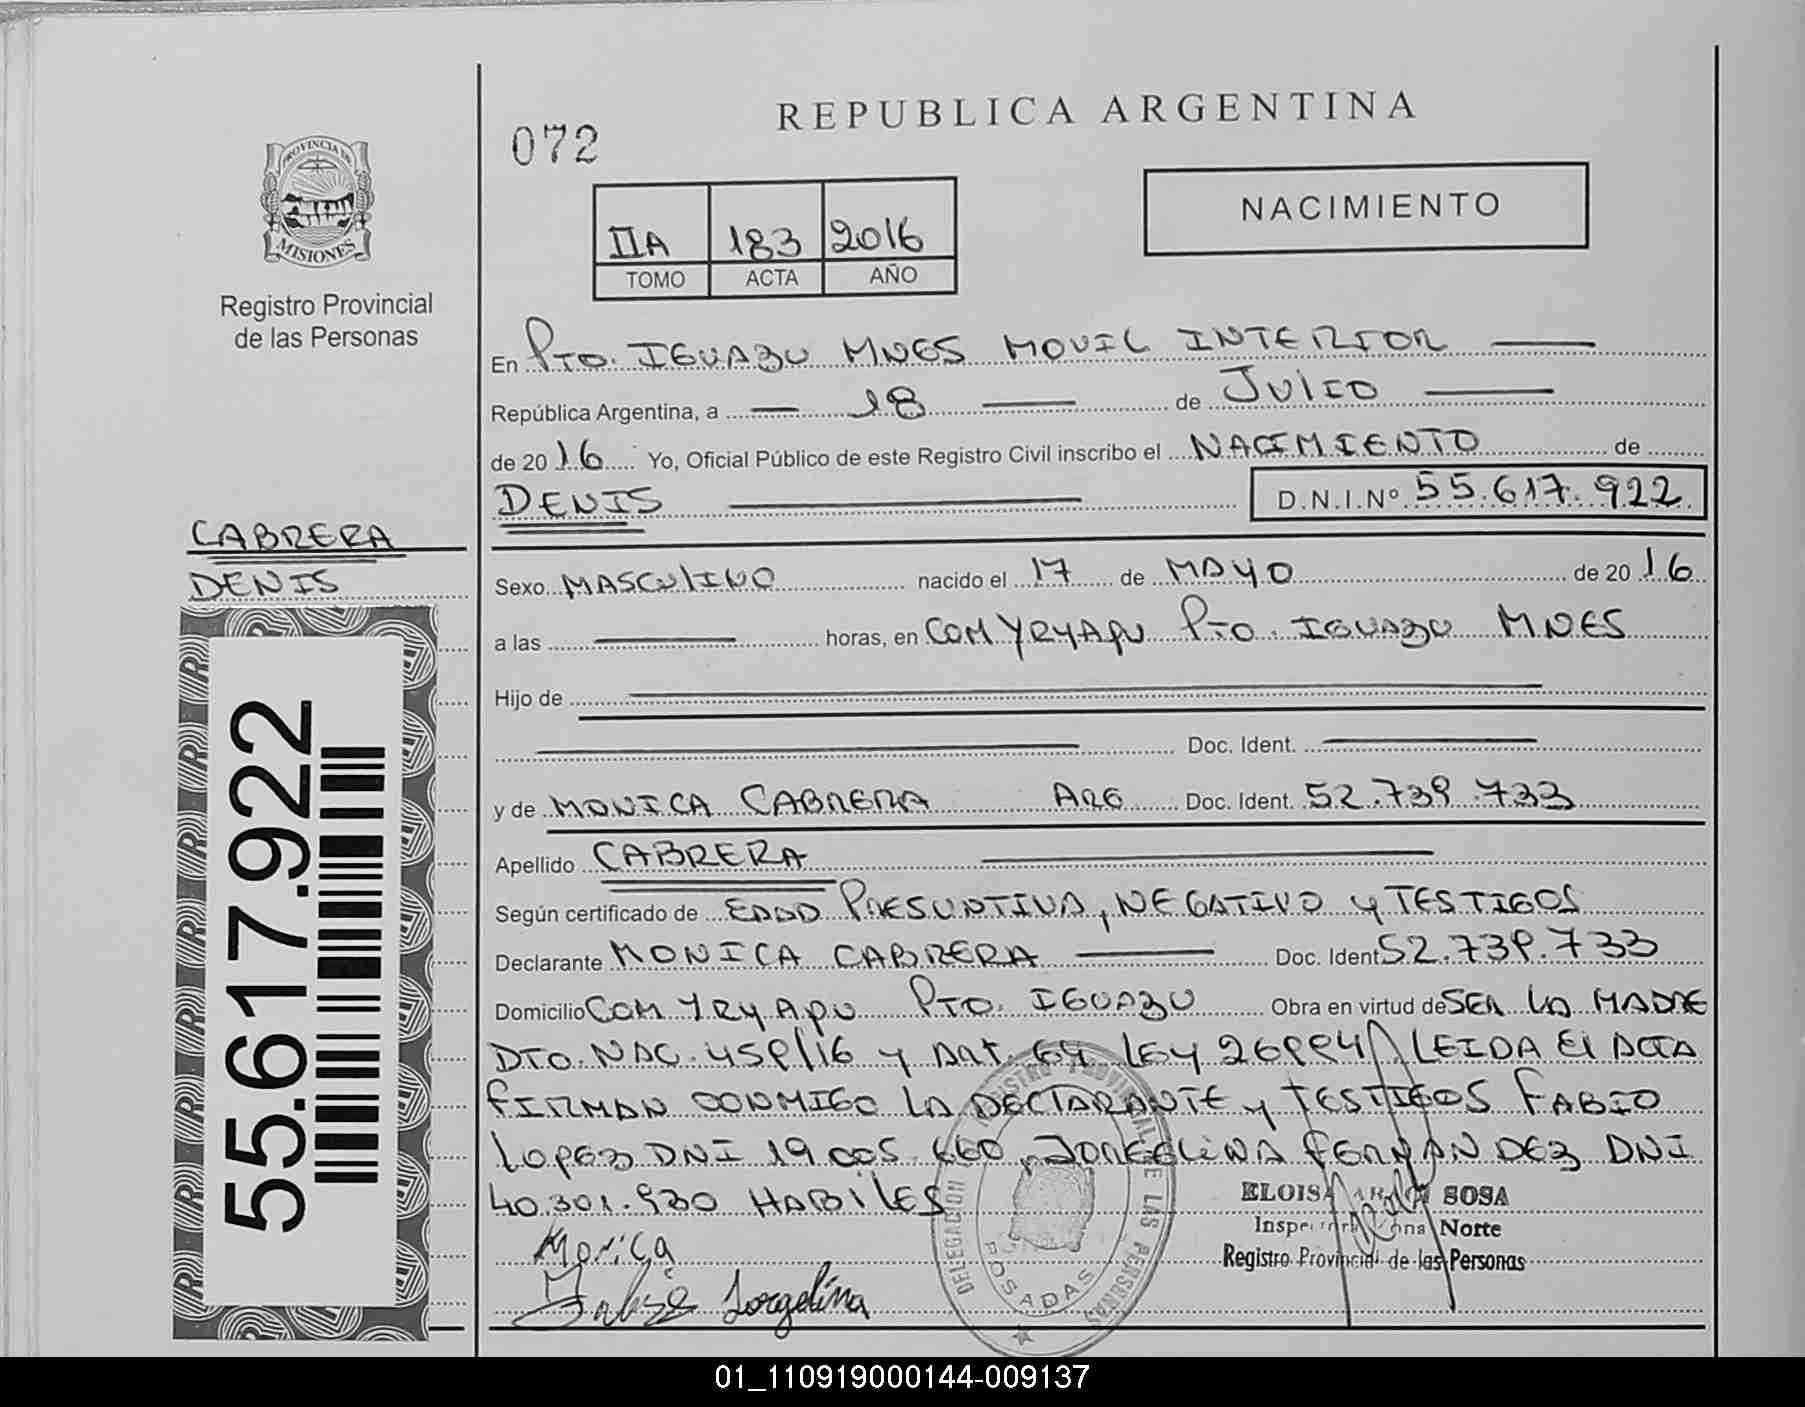 REPUBLICA ARGENTINA
072
NACIMIENTO
IIA 183 2016
TOMO ACTA AÑO
PROVINCIA DE
MISIONES
Registro Provincial
de las Personas
En Pto. IGUAZU MNES MOVIL INTERIOR
República Argentina, a 18 de JULIO
de 2016 Yo, Oficial Público de este Registro Civil inscribo el NACIMIENTO de
DENIS D.N.I.Nº 55.617.922
CABRERA
DENIS
55.617.922
Sexo MASCULINO nacido el 17 de MAYO de 2016
a las horas, en COM YRYAPU Pto. IGUAZU MNES
Hijo de
Doc. Ident.
y de MONICA CABRERA ARG Doc. Ident. 52.739.733
Apellido CABRERA
Según certificado de EDAD PRESUNTIVA, NEGATIVO y TESTIGOS
Declarante MONICA CABRERA Doc. Ident 52.739.733
Domicilio COM YRYAPU PTO. IGUAZU Obra en virtud de SER LA MADRE
DTO. NAC. 459/16 y ART. 64 LEY 26994 LEIDA El ACTA
FIRMAN CONMIGO LA DECLARANTE y TESTIGOS FABIO
LOPEZ DNI 19 005 JORGELINA FERNANDEZ DNI
40.301.930 HABILES
ELOISA SOSA
Norte
Registro Provincial de las Personas
Monica
Jorgelina
REGISTRO PROVINCIAL DE LAS PERSONAS
DELEGACION
POSADAS
01_110919000144-009137